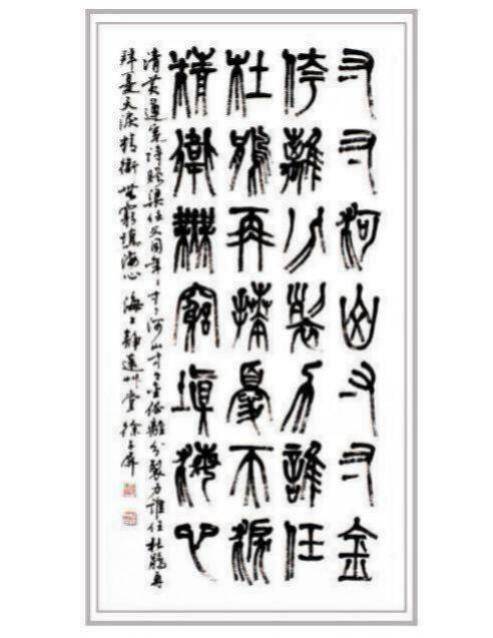 寸寸河山寸寸金
侉離分裂力誰任
杜鵑再拜憂天淚
精衛無窮填海心
清黃遵憲詩贈梁任父同年寸〻河山寸〻金侉離分裂力誰任杜鵑再
拜憂天淚精衛無窮填海心 海上靜遠艸堂徐